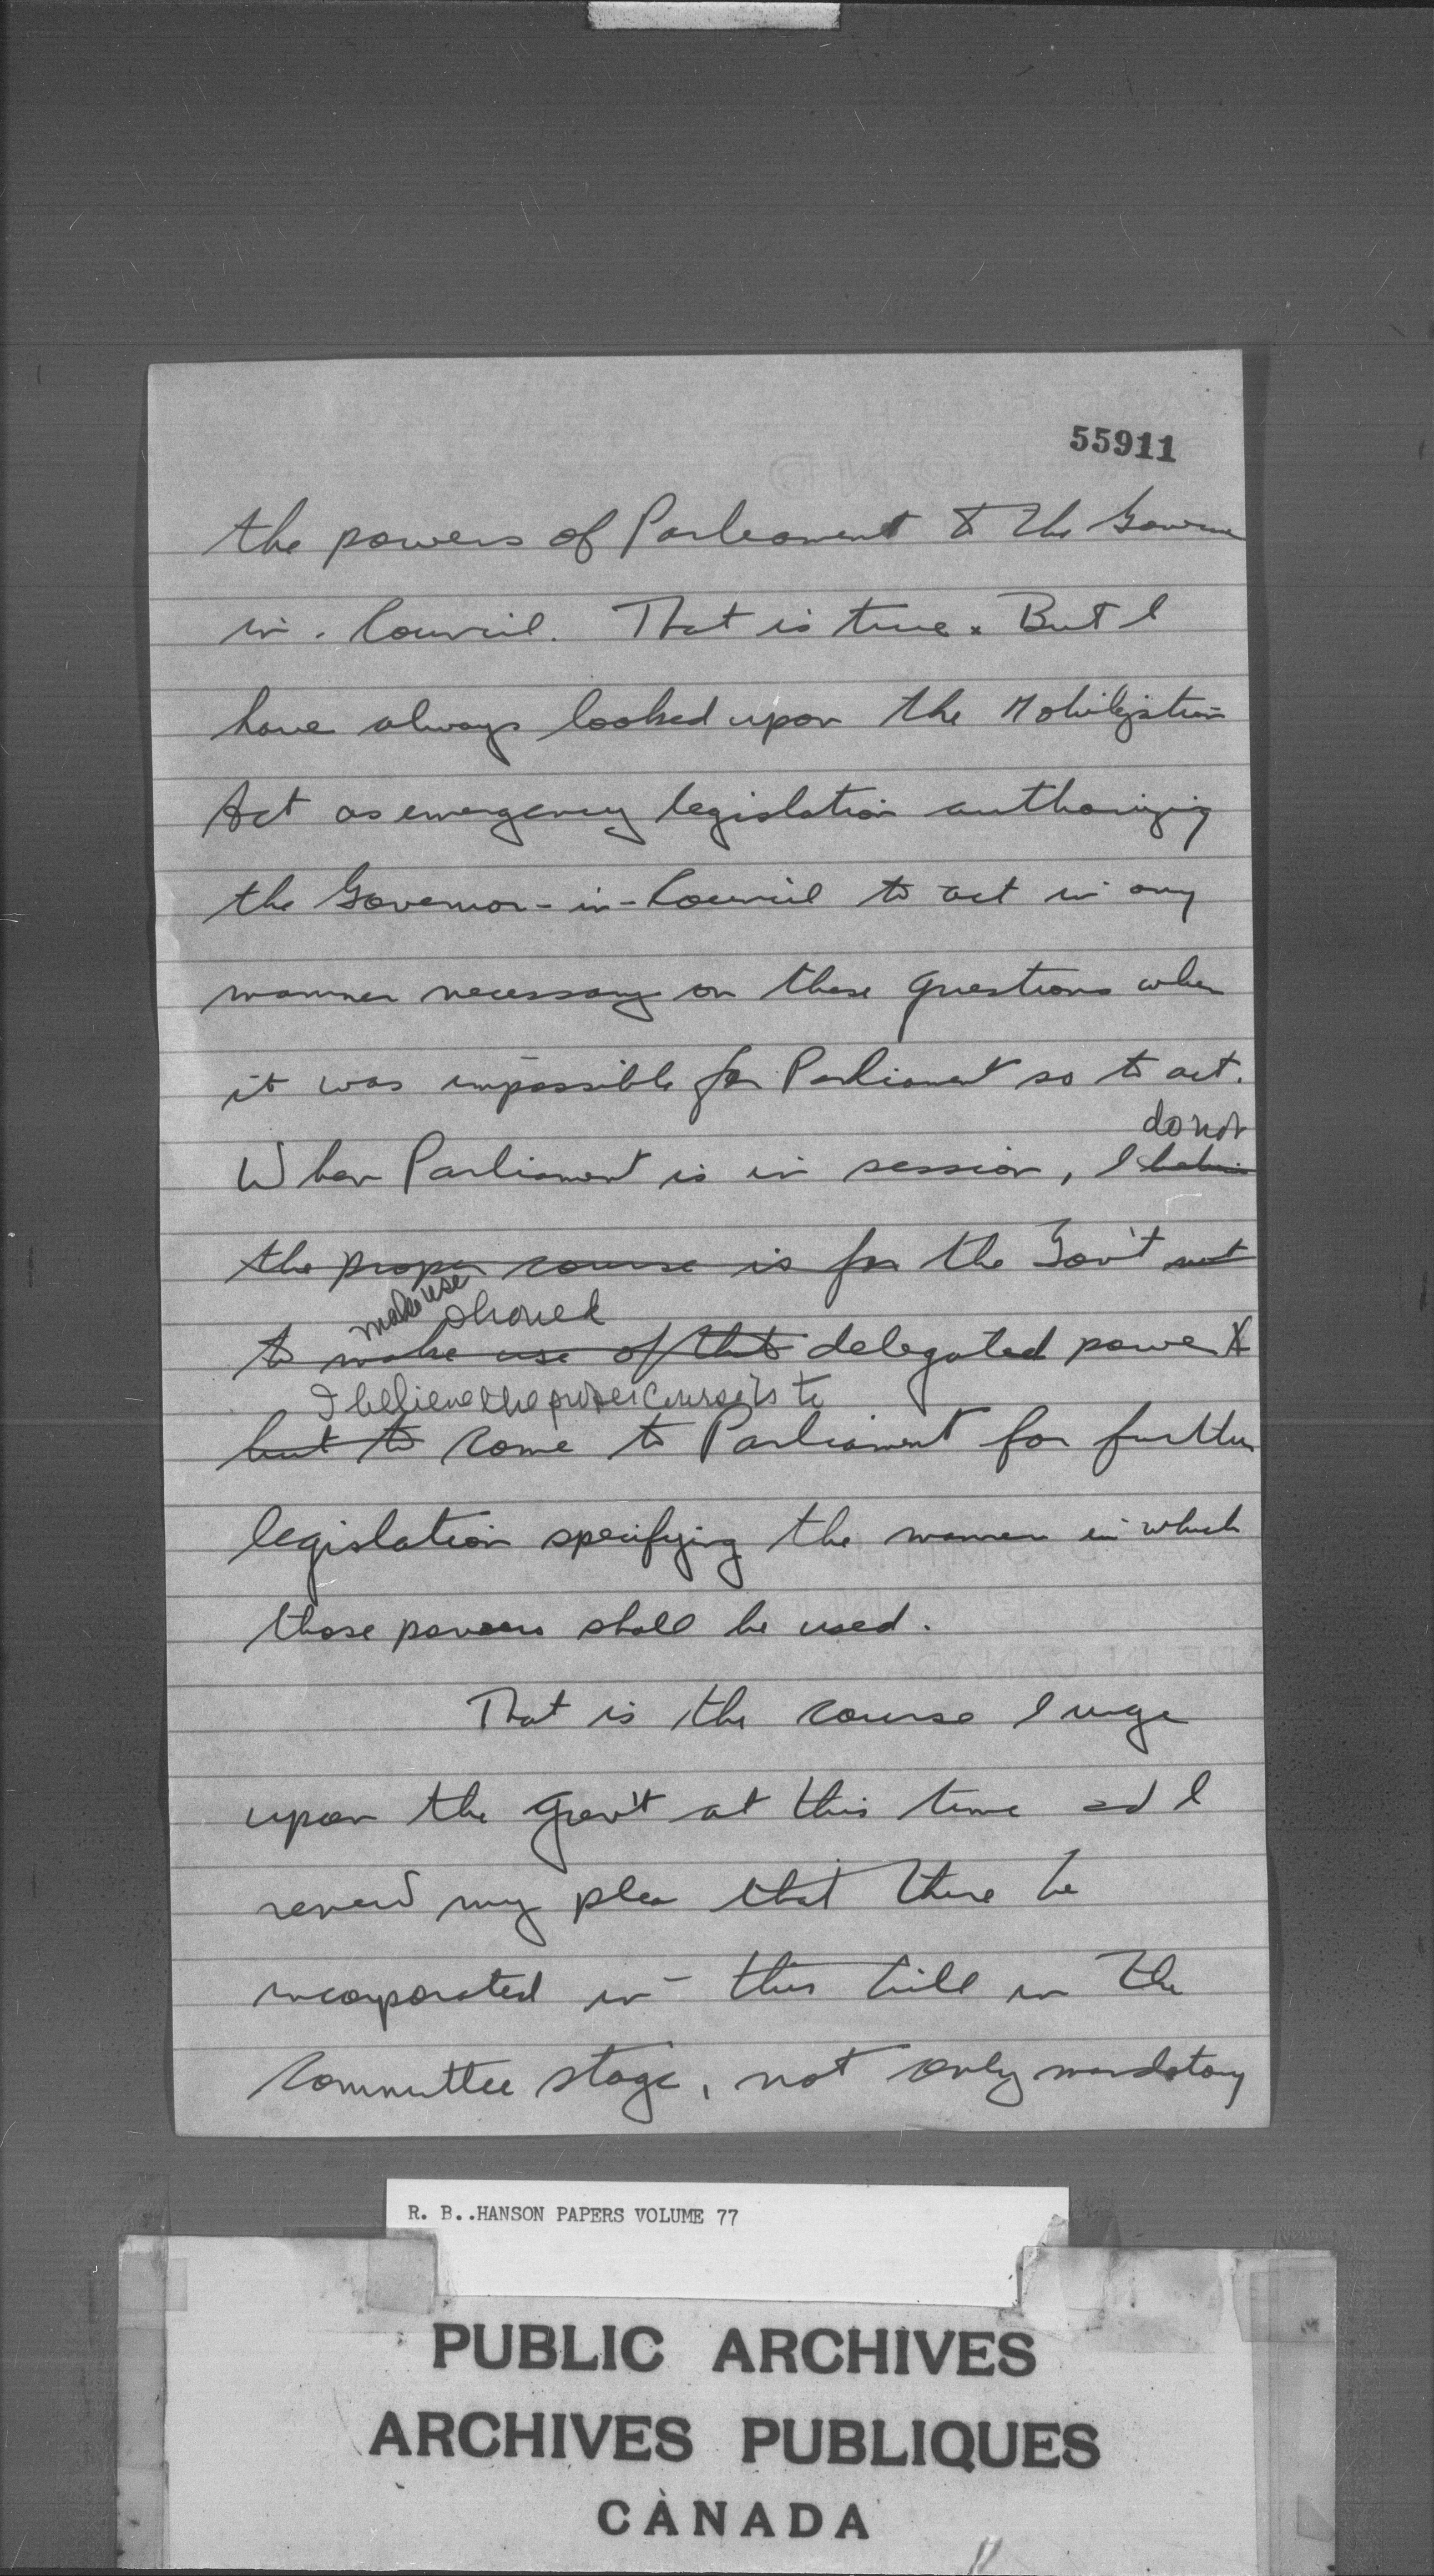 55911
the powers of Parliament to the Governor
in. Council. That is true. But I
have always looked upon the Mobilization
Act as emergency legislation authorizing
the Governor-in-Council to act in any
manner necessary on these questions when
it was impossible for Parliament so to act.
do not
When Parliament is in session, I believe
the proper course is for the Gov't not
make use should
to make use of that delegated power &
I believe the proper course is to
but to come to Parliament for further
legislation specifying the manner in which
those powers shall be used.
That is the course I urge
upon the Gov't at this time and I
renew my plea that there be
incorporated in this bill in the
Committee stage, not only mandatory
R. B..HANSON PAPERS VOLUME 77
PUBLIC ARCHIVES
ARCHIVES PUBLIQUES
CANADA